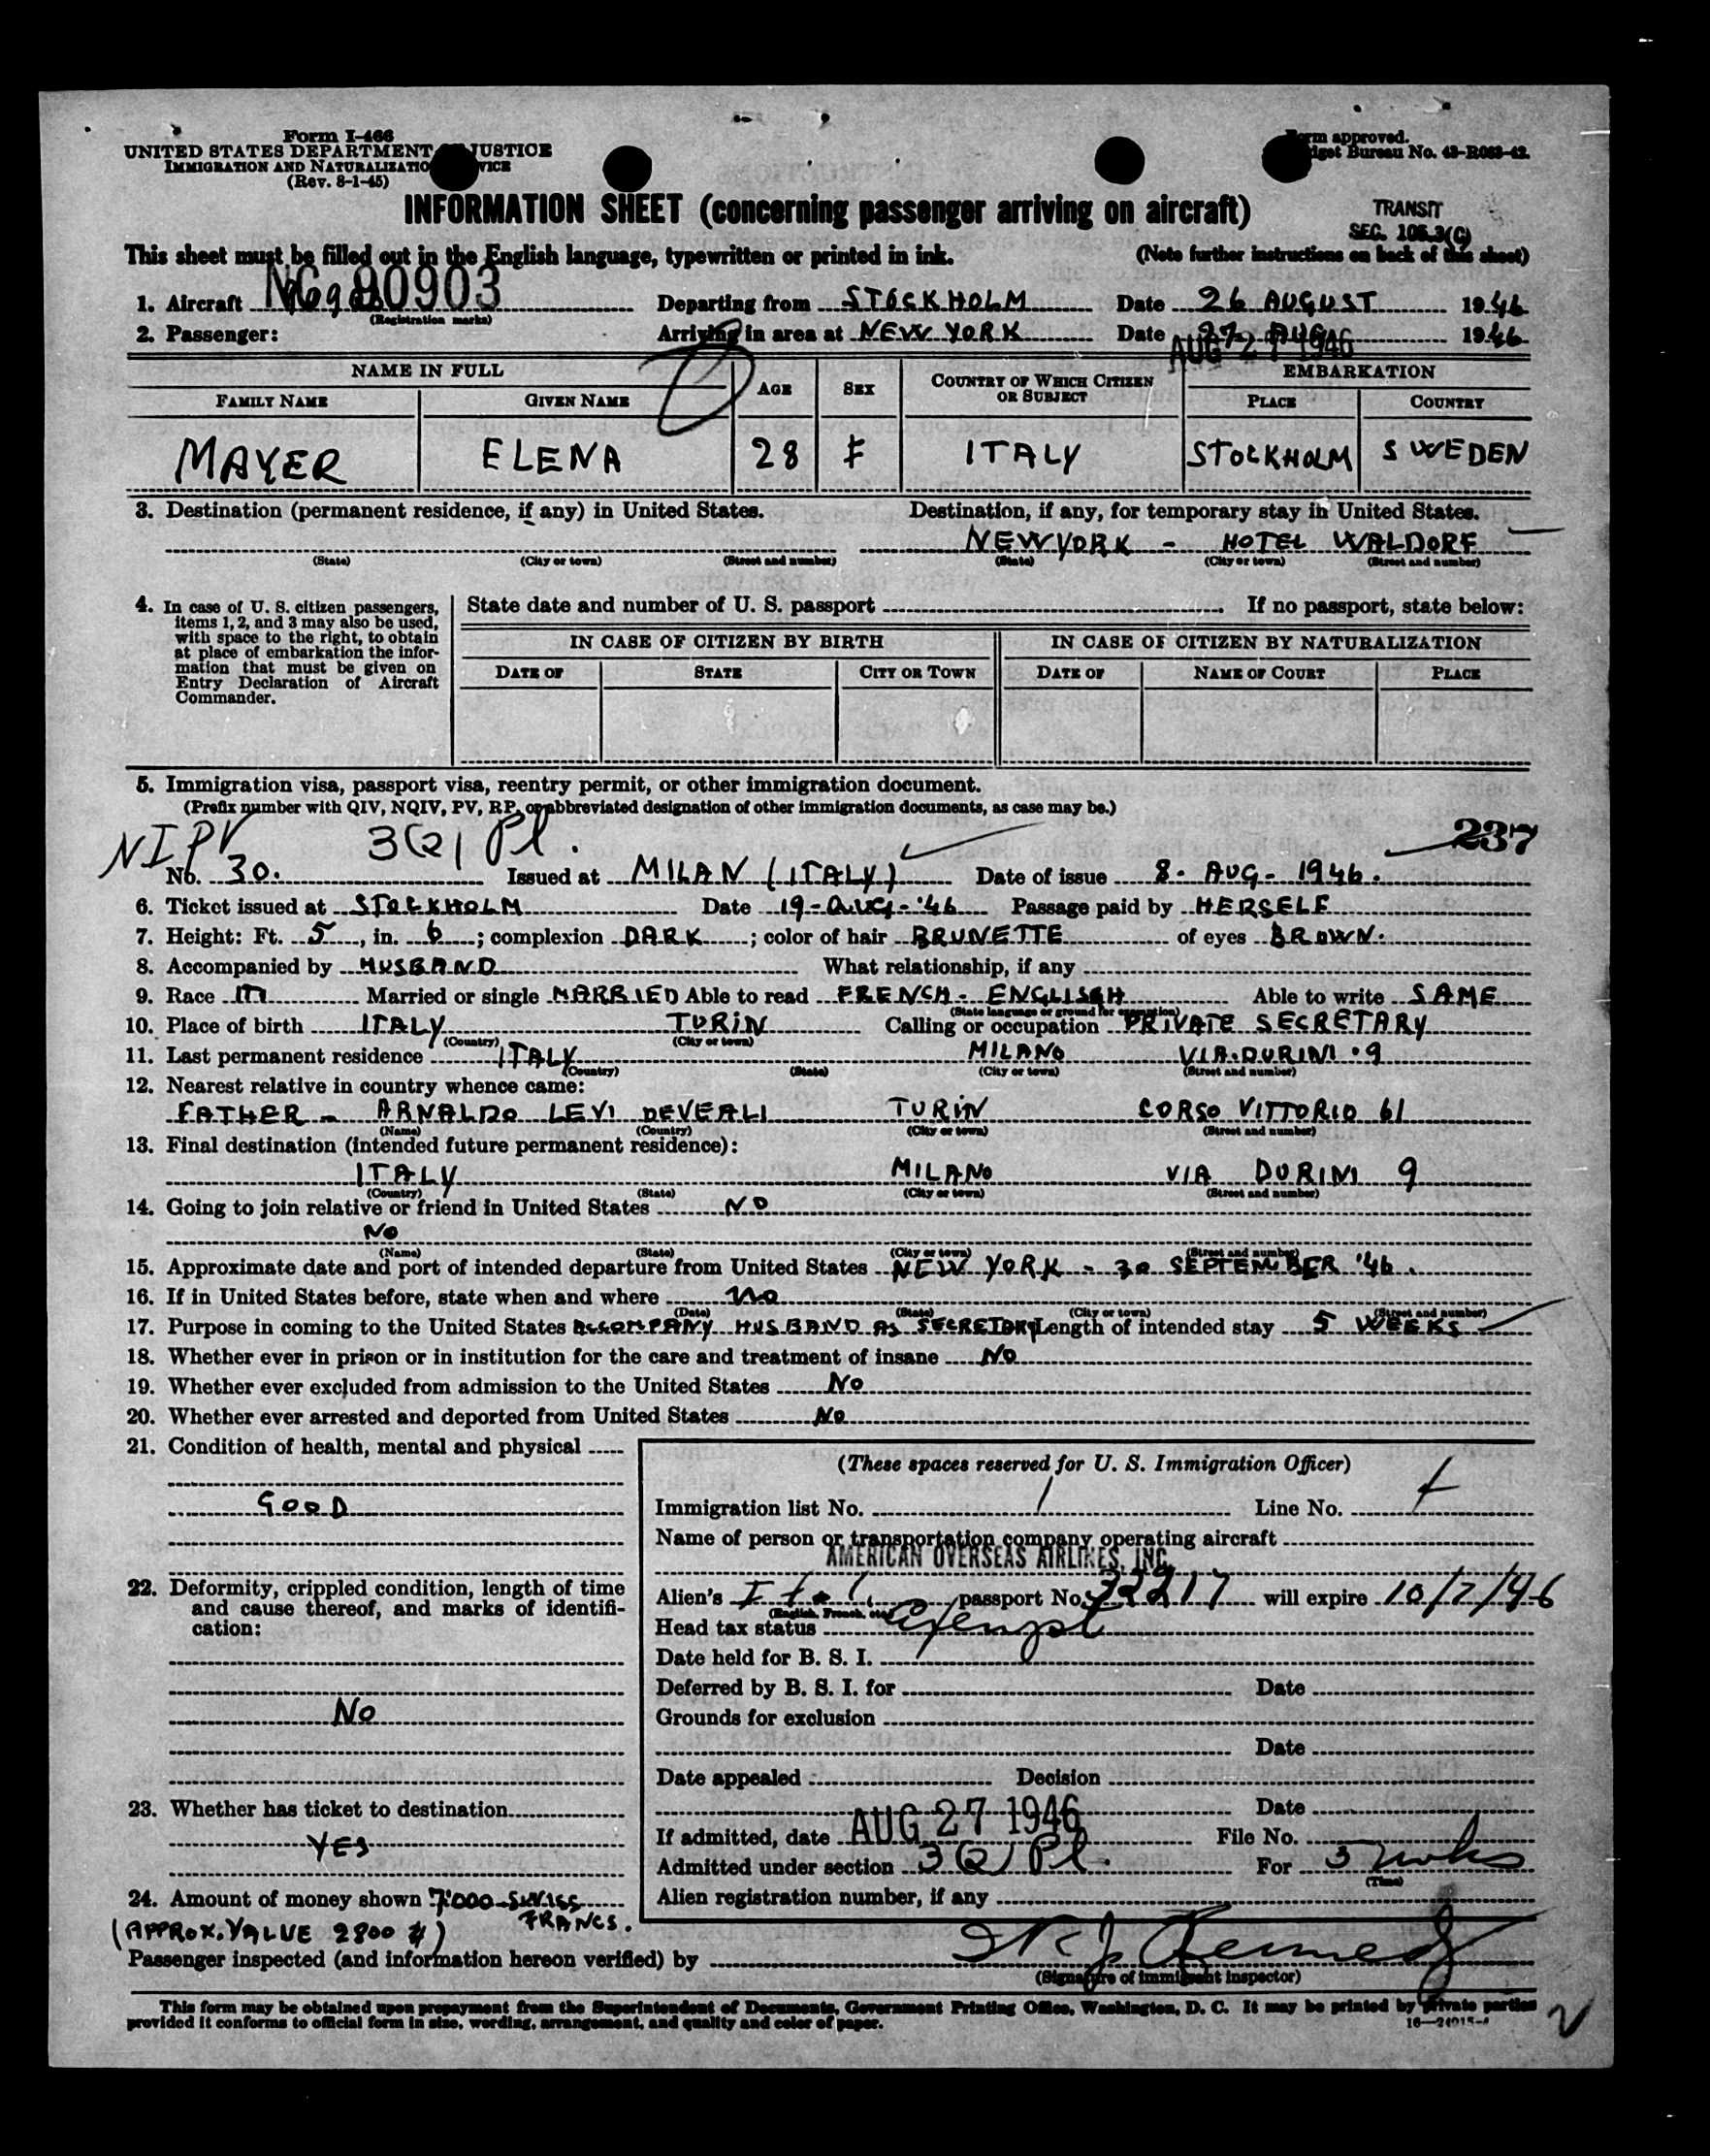 Form I-466
UNITED STATES DEPARTMENT OF JUSTICE
IMMIGRATION AND NATURALIZATION SERVICE
(Rev. 8-1-45)
Form approved.
Budget Bureau No. 43-R083-42.
INFORMATION SHEET (concerning passenger arriving on aircraft)
TRANSIT
SEC. 105.3(G)
This sheet must be filled out in the English language, typewritten or printed in ink. (Note further instructions on back of this sheet)
1. Aircraft NC 90903 Departing from STOCKHOLM Date 26 AUGUST 1946
(Registration marks)
2. Passenger: Arriving in area at NEW YORK Date 27 AUG 1946
AUG 27 1946
NAME IN FULL AGE SEX COUNTRY OF WHICH CITIZEN OR SUBJECT EMBARKATION
FAMILY NAME GIVEN NAME PLACE COUNTRY
MAYER ELENA 28 F ITALY STOCKHOLM SWEDEN
3. Destination (permanent residence, if any) in United States. Destination, if any, for temporary stay in United States.
NEW YORK - HOTEL WALDORF
(State) (City or town) (Street and number) (State) (City or town) (Street and number)
4. In case of U. S. citizen passengers, items 1, 2, and 3 may also be used, with space to the right, to obtain at place of embarkation the information that must be given on Entry Declaration of Aircraft Commander.
State date and number of U. S. passport If no passport, state below:
IN CASE OF CITIZEN BY BIRTH IN CASE OF CITIZEN BY NATURALIZATION
DATE OF STATE CITY OR TOWN DATE OF NAME OF COURT PLACE
5. Immigration visa, passport visa, reentry permit, or other immigration document.
(Prefix number with QIV, NQIV, PV, RP, or abbreviated designation of other immigration documents, as case may be.)
NIPV 3(2) Pl. 237
No. 30. Issued at MILAN (ITALY) Date of issue 8. AUG- 1946.
6. Ticket issued at STOCKHOLM Date 19-AUG-'46 Passage paid by HERSELF
7. Height: Ft. 5, in. 6; complexion DARK; color of hair BRUNETTE of eyes BROWN.
8. Accompanied by HUSBAND What relationship, if any
9. Race Married or single MARRIED Able to read FRENCH - ENGLISGH Able to write SAME
(State language or ground for exemption)
10. Place of birth ITALY TURIN Calling or occupation PRIVATE SECRETARY
(Country) (City or town)
11. Last permanent residence ITALY MILANO VIA. DURINI. 9
(Country) (State) (City or town) (Street and number)
12. Nearest relative in country whence came:
FATHER - ARNALDO LEVI DEVEALI TURIN CORSO VITTORIO 61
(Name) (Country) (City or town) (Street and number)
13. Final destination (intended future permanent residence):
ITALY MILANO VIA DURINI 9
(Country) (State) (City or town) (Street and number)
14. Going to join relative or friend in United States NO
NO
(Name) (State) (City or town) (Street and number)
15. Approximate date and port of intended departure from United States NEW YORK - 30 SEPTEMBER '46.
16. If in United States before, state when and where NO
(Date) (State) (City or town) (Street and number)
17. Purpose in coming to the United States ACCOMPANY HUSBAND AS SECRETARY Length of intended stay 5 WEEKS
18. Whether ever in prison or in institution for the care and treatment of insane NO
19. Whether ever excluded from admission to the United States NO
20. Whether ever arrested and deported from United States NO
21. Condition of health, mental and physical
GOOD
22. Deformity, crippled condition, length of time and cause thereof, and marks of identification:
NO
23. Whether has ticket to destination
YES
24. Amount of money shown 7'000 SWISS FRANCS.
(APPROX. VALUE 2800 $)
(These spaces reserved for U. S. Immigration Officer)
Immigration list No. 1 Line No.
Name of person or transportation company operating aircraft
AMERICAN OVERSEAS AIRLINES, INC.
Alien's Ital. passport No. will expire 10/7/46
(English, French, etc.)
Head tax status Exempt
Date held for B. S. I.
Deferred by B. S. I. for Date
Grounds for exclusion
Date
Date appealed Decision
Date
If admitted, date AUG 27 1946 File No.
Admitted under section 3(2) Pl. For 5 wks
(Time)
Alien registration number, if any
Passenger inspected (and information hereon verified) by
(Signature of immigrant inspector)
This form may be obtained upon prepayment from the Superintendent of Documents, Government Printing Office, Washington, D. C. It may be printed by private parties
provided it conforms to official form in size, wording, arrangement, and quality and color of paper.
16—24015-1